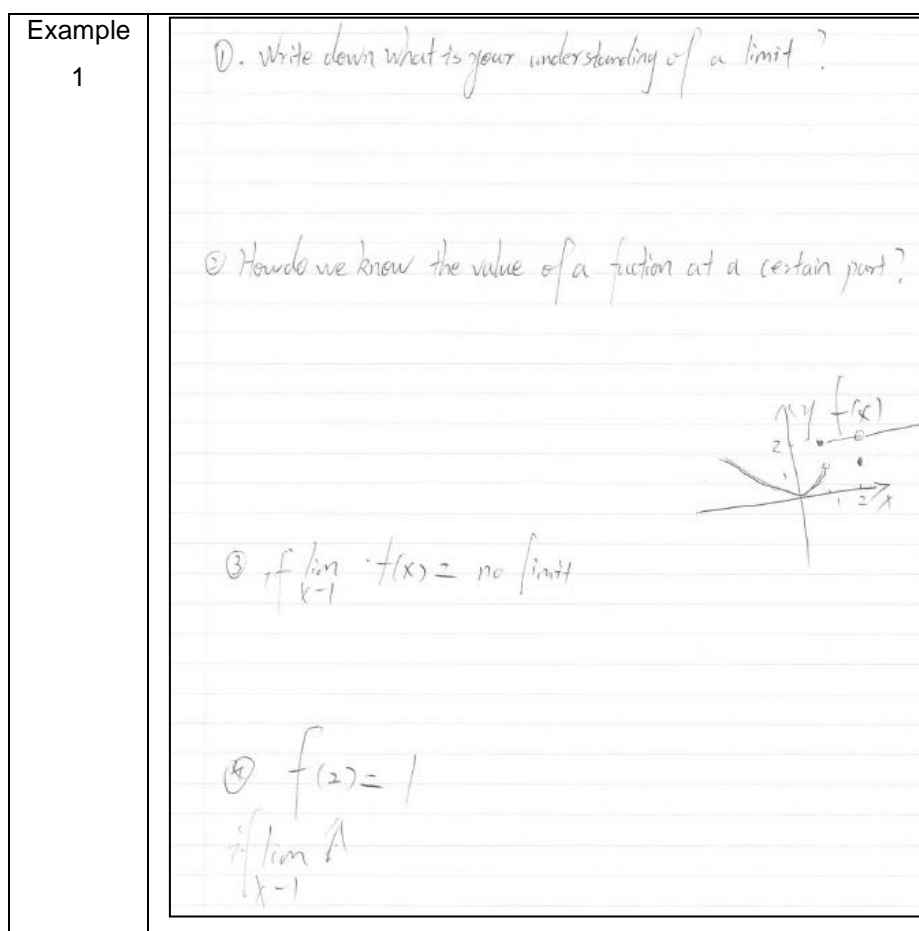 Example
1
①. Write down what is your understanding of a limit?
② How do we know the value of a fuction at a certain part?
y f(x)
2
1
1 2 x
③ if lim f(x) = no limit
x-1
④ f(2) = 1
if lim
x-1